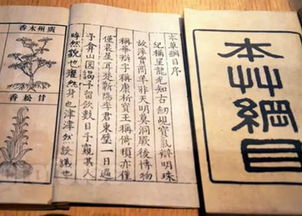 本艸綱目
本草綱目序
紀稱望龍光知古劒覘寶氣辯明珠
故萍實商羊非天明莫洞厥後博物
稱華辯字稱康析寶玉稱倚頓亦僅
僅晨星耳楚蘄陽李君東璧一日過
予弇山園謁予留飲數日予窺其人
睟然貌也癯然身也津津然譚議也
廣州木香
甘松香